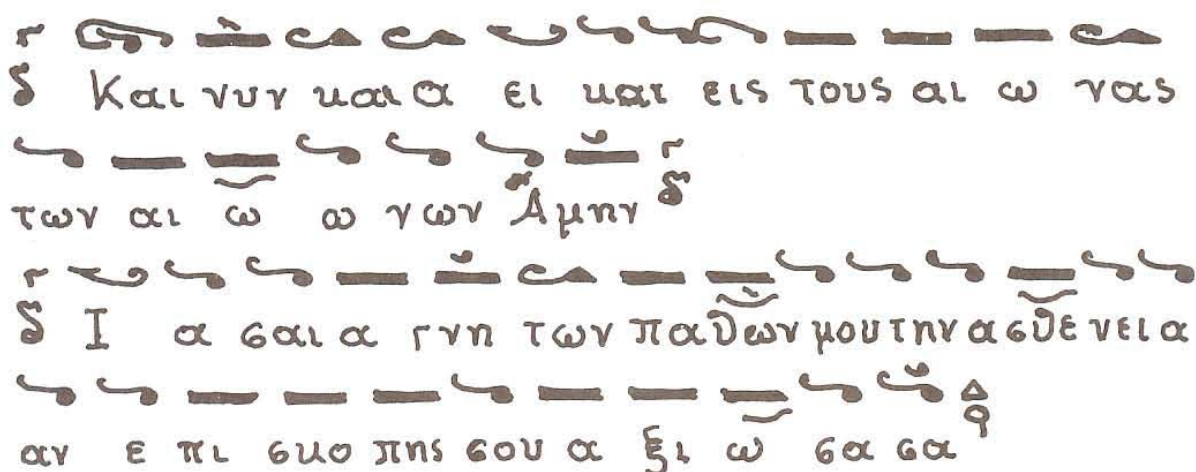 δ Και νυν και α ει και εις τους αι ω νας
των αι ω ω νων Ἀμην δ
δ Ι α σαι α γνη των παθων μου την ασθε νει α
αν ε πι σκο πης σου α ξι ω σα σα Δ